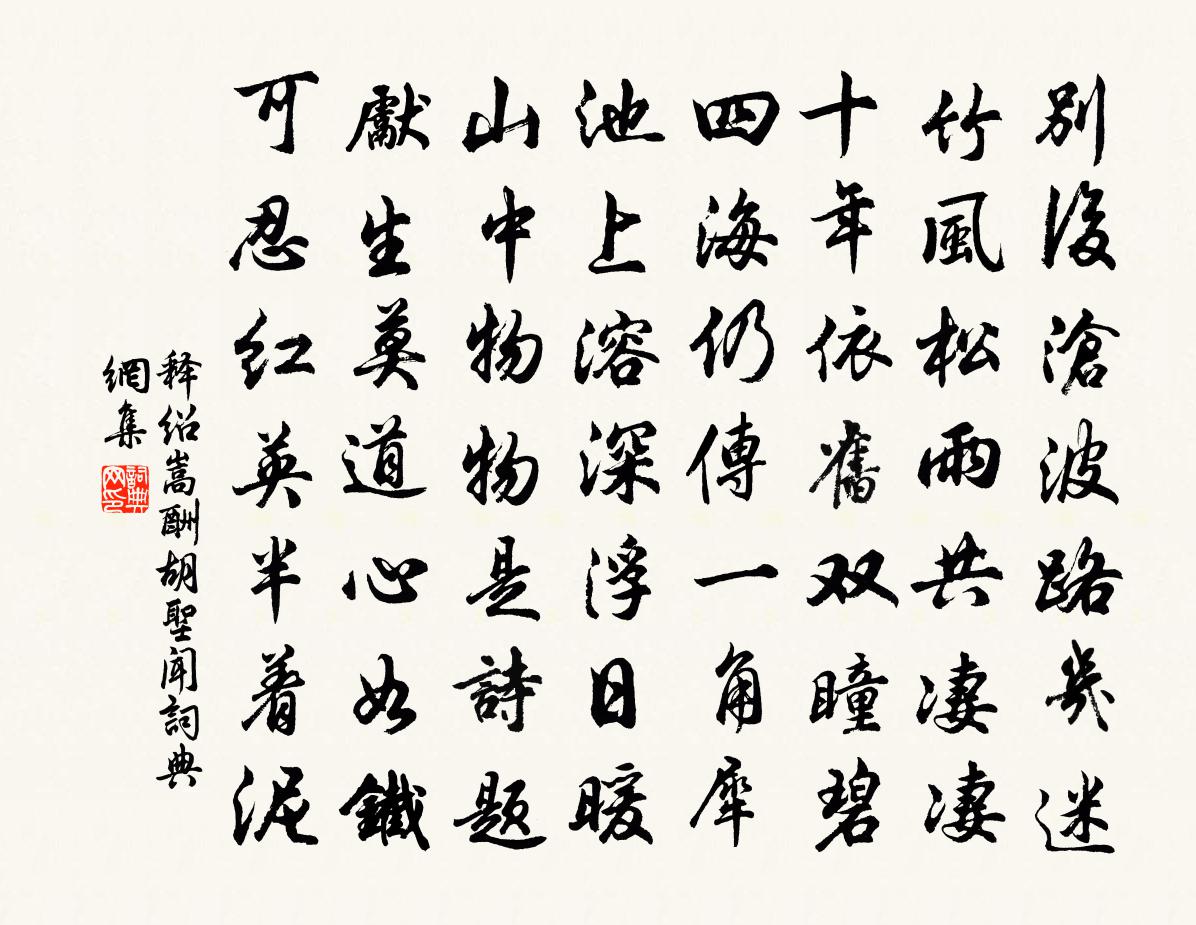 別後滄波路幾迷
竹風松雨共凄凄
十年依舊双瞳碧
四海仍傳一角犀
池上溶深浮日暖
山中物物是詩题
獻生莫道心如鐵
可忍红英半着泥
释绍嵩酬胡聖闻詞典
網集
詞典
网印